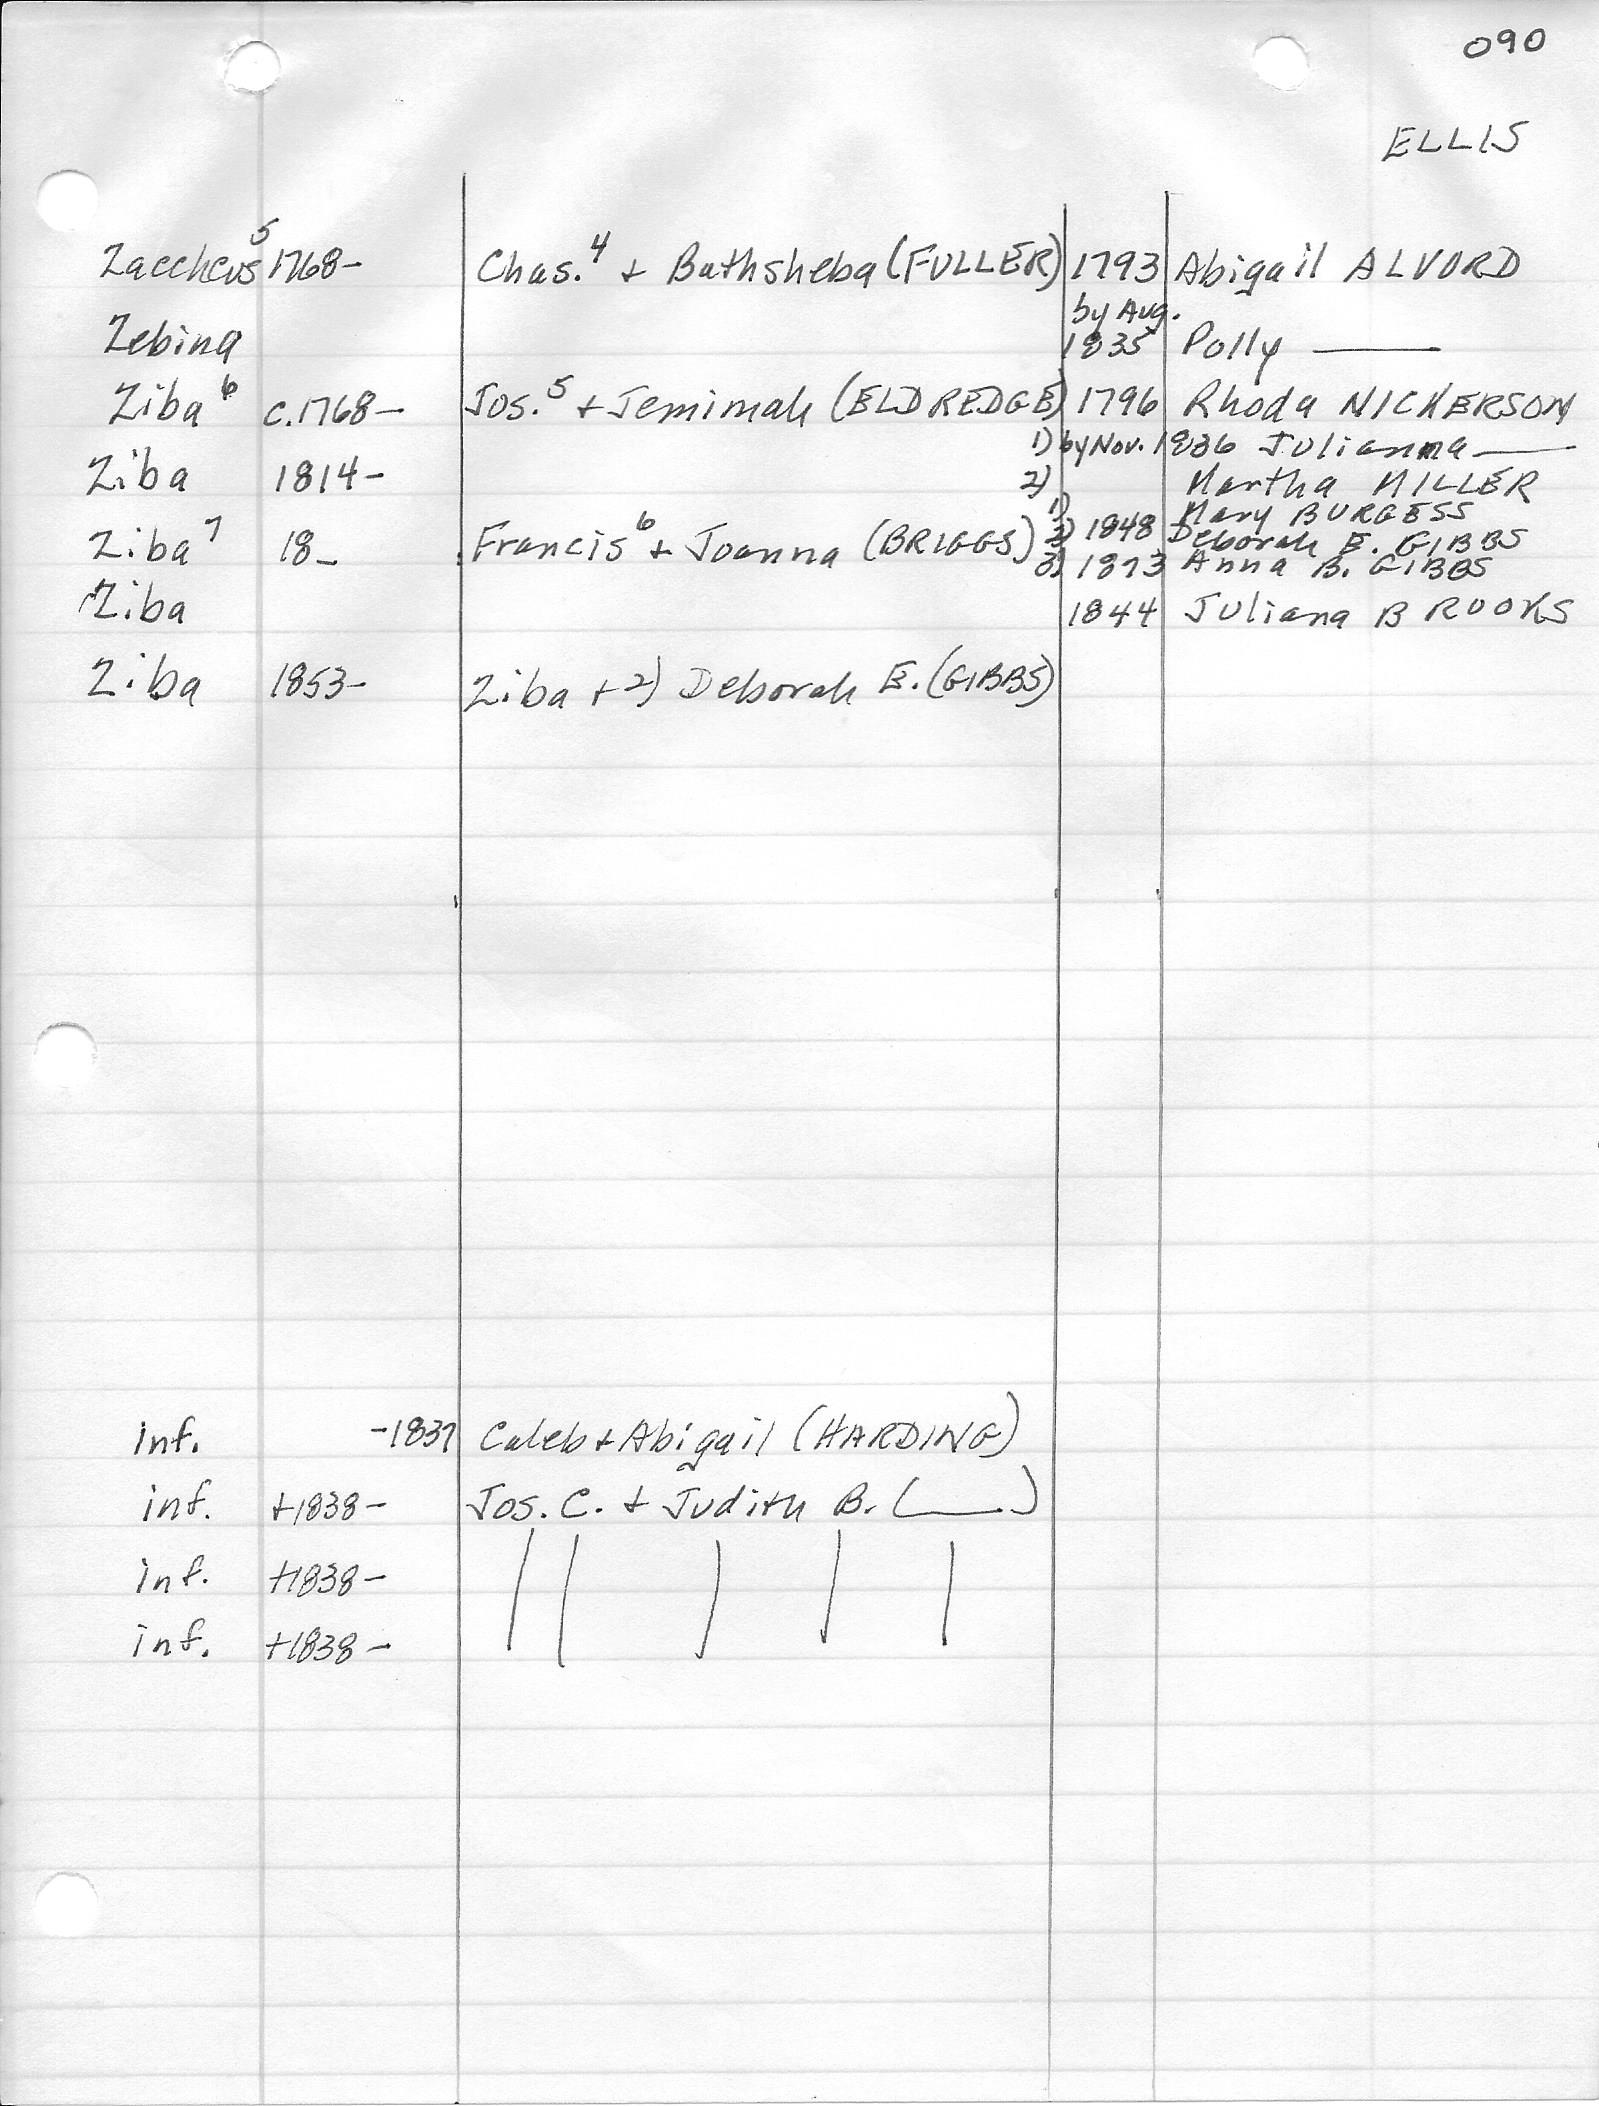 090
ELLIS
Zaccheus⁵ 1768- Chas.⁴ + Bathsheba (FULLER) 1793 Abigail ALVORD
Zebina by Aug. 1835 Polly ———
Ziba⁶ c.1768- Jos.⁵ + Jemimah (ELDREDGE) 1796 Rhoda NICKERSON
1) by Nov. 1836 Julianna ———
Ziba 1814- 2) Martha MILLER
1) Mary BURGESS
Ziba⁷ 18_ Francis⁶ + Joanna (BRIGGS) 2) 1848 Deborah E. GIBBS
3) 1873 Anna B. GIBBS
Ziba 1844 Juliana BROOKS
Ziba 1853- Ziba + 2) Deborah E. (GIBBS)
inf. -1837 Caleb + Abigail (HARDING)
inf. +1838- Jos. C. + Judith B. (___)
inf. +1838-
inf. +1838-